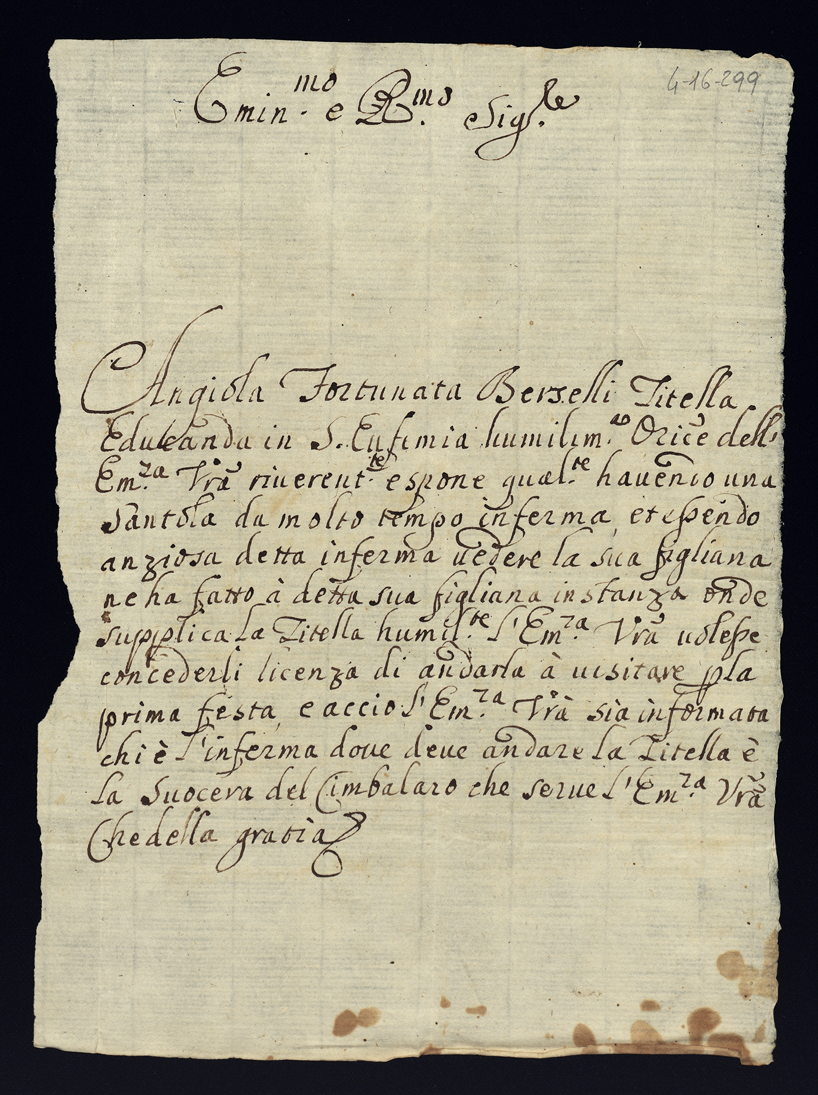 4-16-299
Emin.mo e R.mo Sig.re
Angiola Fortunata Berselli Zitella
Educanda in S. Eufemia humilim.a Oric̃e dell'
Em.za Vrã riverent.te espone qual.te havendo una
Santola da molto tempo inferma, et essendo
anziosa detta inferma vedere la sua figliana
ne ha fatto à detta sua figliana instanza onde
supplica la Zitella humil.te l'Em.za Vrã volesse
concederli licenza di andarla à visitare p la
prima festa, e acciò l'Em.za Vrã sia informata
chi è l'inferma dove deve andare la Zitella è
la Suocera del Cimbalaro che serve l'Em.za Vrã
Che della gratia